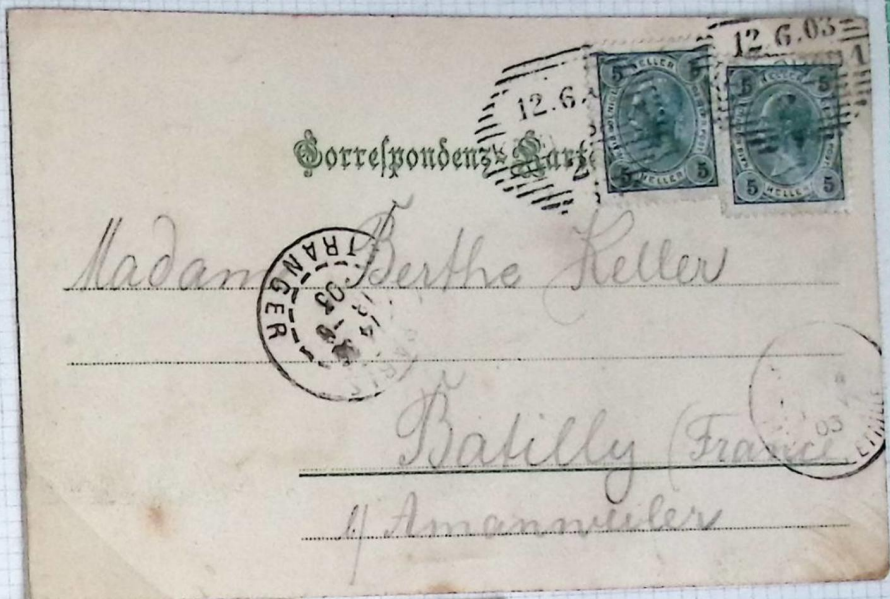 12.6.03
12.6.
5 HELLER 5
5 HELLER 5
5 HELLER 5
5 HELLER 5
Correspondenz-Karte
Madam Berthe Keller
ETRANGER
PARIS
03
Batilly (France
03
a/ Amanweiler